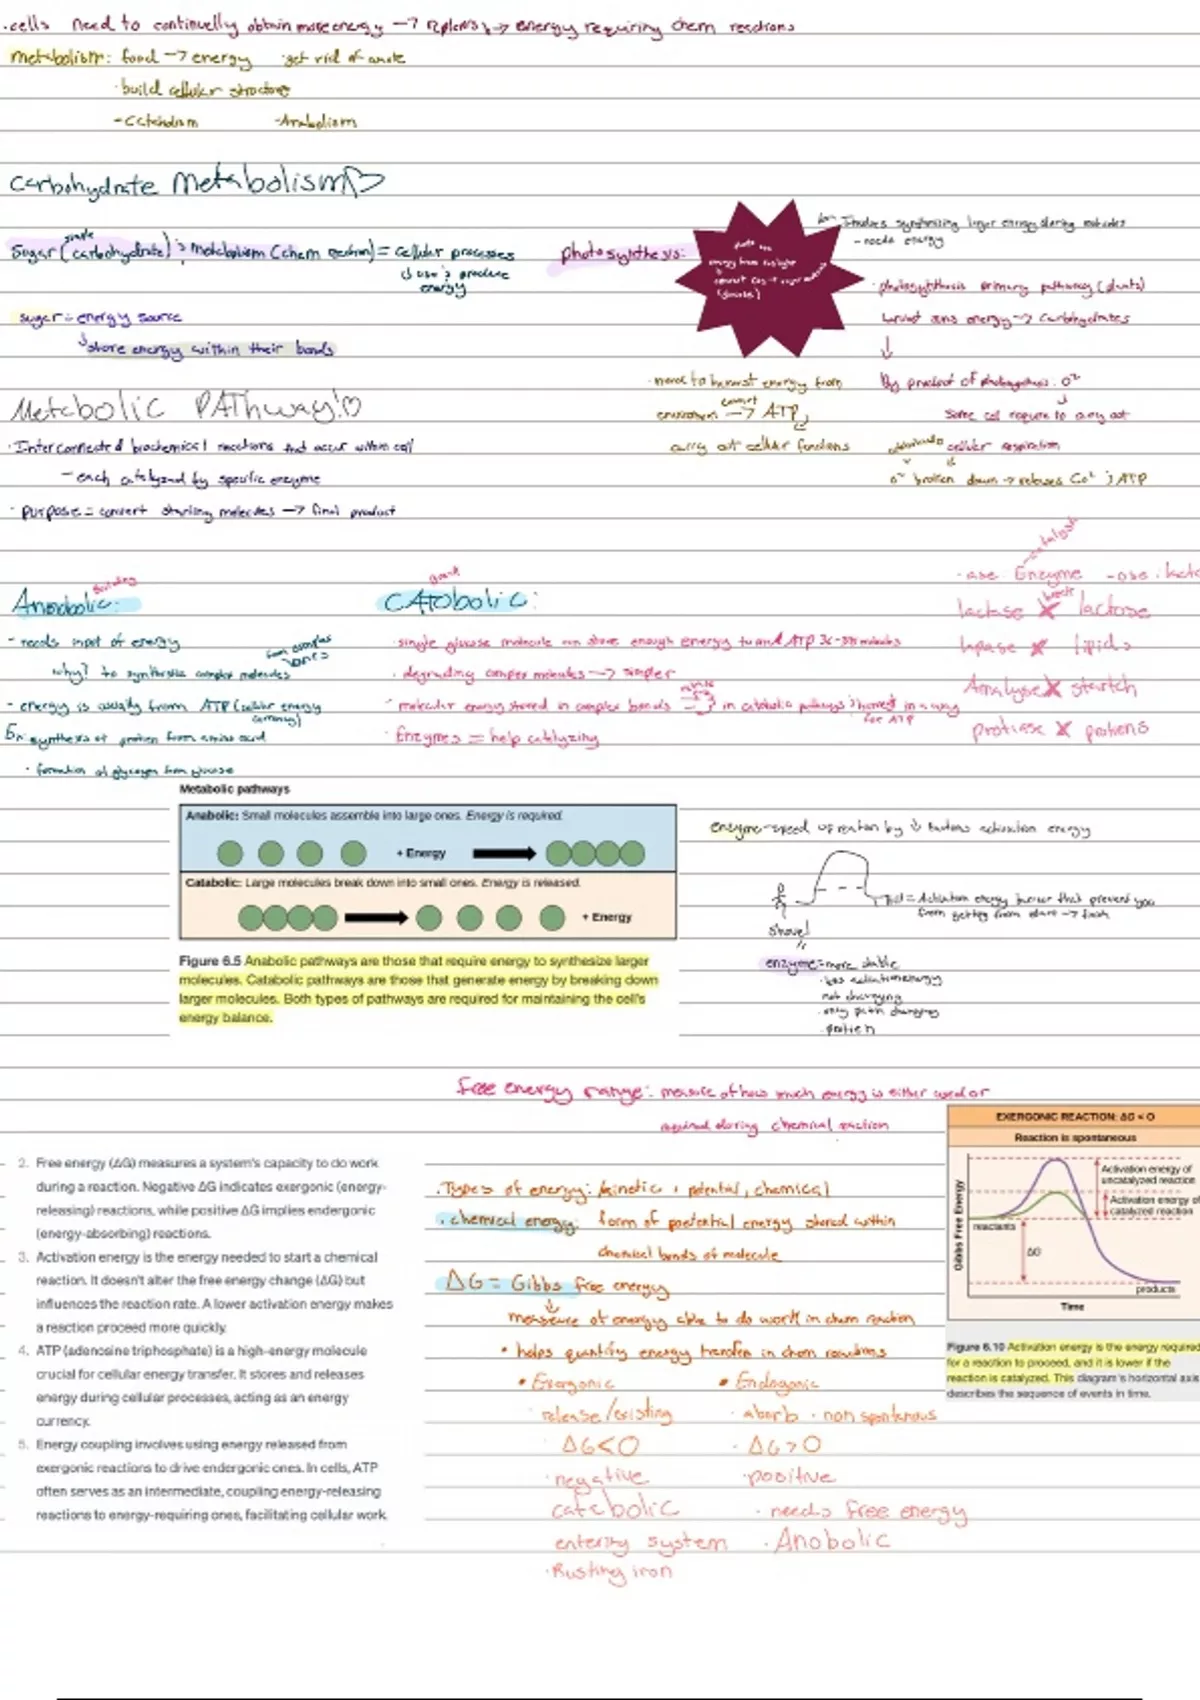 .cells need to continually obtain more energy → replenish energy requiring chem reactions
metabolism: food → energy · get rid of waste
· build cellular structure
- Catabolism - Anabolism
Carbohydrate Metabolism
simple
Sugar (carbohydrate) : metabolism (chem reaction) = cellular processes
use & produce
energy
sugar = energy source
↳ store energy within their bonds
photosynthesis:
energy from sunlight
(glucose)
Involves synthesizing larger energy storing molecules
- needs energy
· photosynthesis primary pathway (plants)
energy → carbohydrates
↓
By product of photosynthesis: O²
↓
Some cell require to carry out
cellular respiration
O² broken down → releases CO² ; ATP
· need to harvest energy from
convert
environment → ATP
carry out cellular functions
Metabolic PATHway!
· Interconnected biochemical reactions that occur within cell
- each catalyzed by specific enzyme
· purpose = convert starting molecules → final product
building
Anabolic:
- needs input of energy
from complex
ones
why? to synthesize complex molecules
- energy is usually from ATP (cellular energy
currency)
Ex: synthesis of protien from amino acid
· formation of glycogen from glucose
CATabolic:
· single glucose molecule can store enough energy to
ATP 36-38 molecules
· degrading complex molecules → simpler
· molecular energy stored in complex bonds
in catabolic pathways ; harvest in a way
for ATP
· Enzymes = help catalyzing
catalysis
-ase: Enzyme -ose:
lactase X break lactose
X lipids
X startch
protiase X protiens
Metabolic pathways
Anabolic: Small molecules assemble into large ones. Energy is required.
+ Energy
Catabolic: Large molecules break down into small ones. Energy is released.
+ Energy
Figure 6.5 Anabolic pathways are those that require energy to synthesize larger
molecules. Catabolic pathways are those that generate energy by breaking down
larger molecules. Both types of pathways are required for maintaining the cell's
energy balance.
enzyme - speed up reaction by ↓ activation energy
= Activation energy barrier that prevent you
from getting from start → finish
shovel
enzyme = more stable
· less activation energy
not changing
· only path changing
· protein
free energy range: measure of how much energy is either used or
required during chemical reaction
2. Free energy (ΔG) measures a system's capacity to do work
during a reaction. Negative ΔG indicates exergonic (energy-
releasing) reactions, while positive ΔG implies endergonic
(energy-absorbing) reactions.
3. Activation energy is the energy needed to start a chemical
reaction. It doesn't alter the free energy change (ΔG) but
influences the reaction rate. A lower activation energy makes
a reaction proceed more quickly.
4. ATP (adenosine triphosphate) is a high-energy molecule
crucial for cellular energy transfer. It stores and releases
energy during cellular processes, acting as an energy
currency.
5. Energy coupling involves using energy released from
exergonic reactions to drive endergonic ones. In cells, ATP
often serves as an intermediate, coupling energy-releasing
reactions to energy-requiring ones, facilitating cellular work.
. Types of energy: kinetic + potential, chemical
. chemical energy: form of poetential energy stored within
chemical bonds of molecule
ΔG = Gibbs free energy
↓
measure of energy able to do work in chem reaction
• helps quantify energy transfer in chem reactions
• Exergonic • Endogonic
· release/existing · absorb · non spontanous
· ΔG<0 · ΔG>0
· negative · positive
catabolic · needs free energy
entering system · Anobolic
· Rusting iron
EXERGONIC REACTION: ΔG < 0
Reaction is spontaneous
Activation energy of
uncatalyzed reaction
Activation energy of
catalyzed reaction
Gibbs Free Energy
reactants
ΔG
products
Time
Figure 6.10 Activation energy is the energy required
for a reaction to proceed, and it is lower if the
reaction is catalyzed. This diagram's horizontal axis
describes the sequence of events in time.